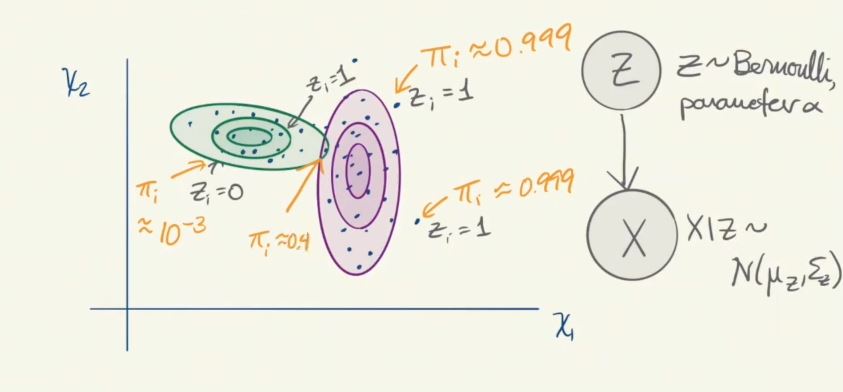 x₂
z_i=1
π_i≈0.999
z_i=1
π_i
≈10⁻³
z_i=0
π_i≈0.4
π_i≈0.999
z_i=1
x₁
Z
Z~Bernoulli,
parameter α
X
X|Z~
N(μ_Z,Σ_Z)